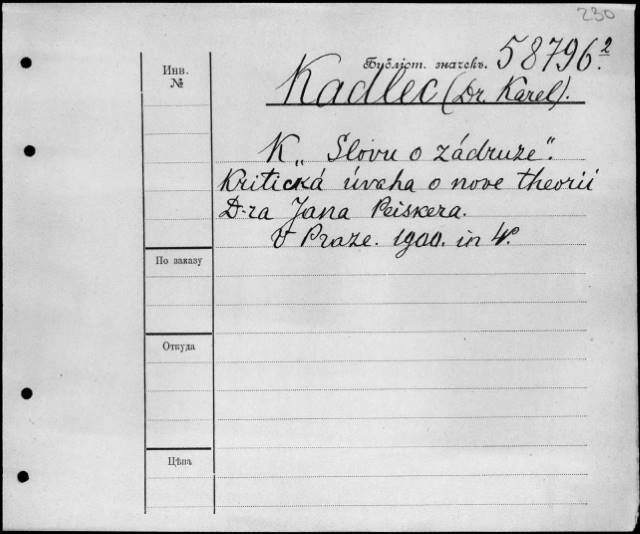 230
Инв.
№
Бубліот. значекъ. 58796.²
Kadlec (Dr. Karel).
K „Slovu o zádruze“.
Kritická úvaha o nove theorii
D-ra Jana Peiskera.
V Praze. 1900. in 4°.
По заказу
Откуда
Цѣна